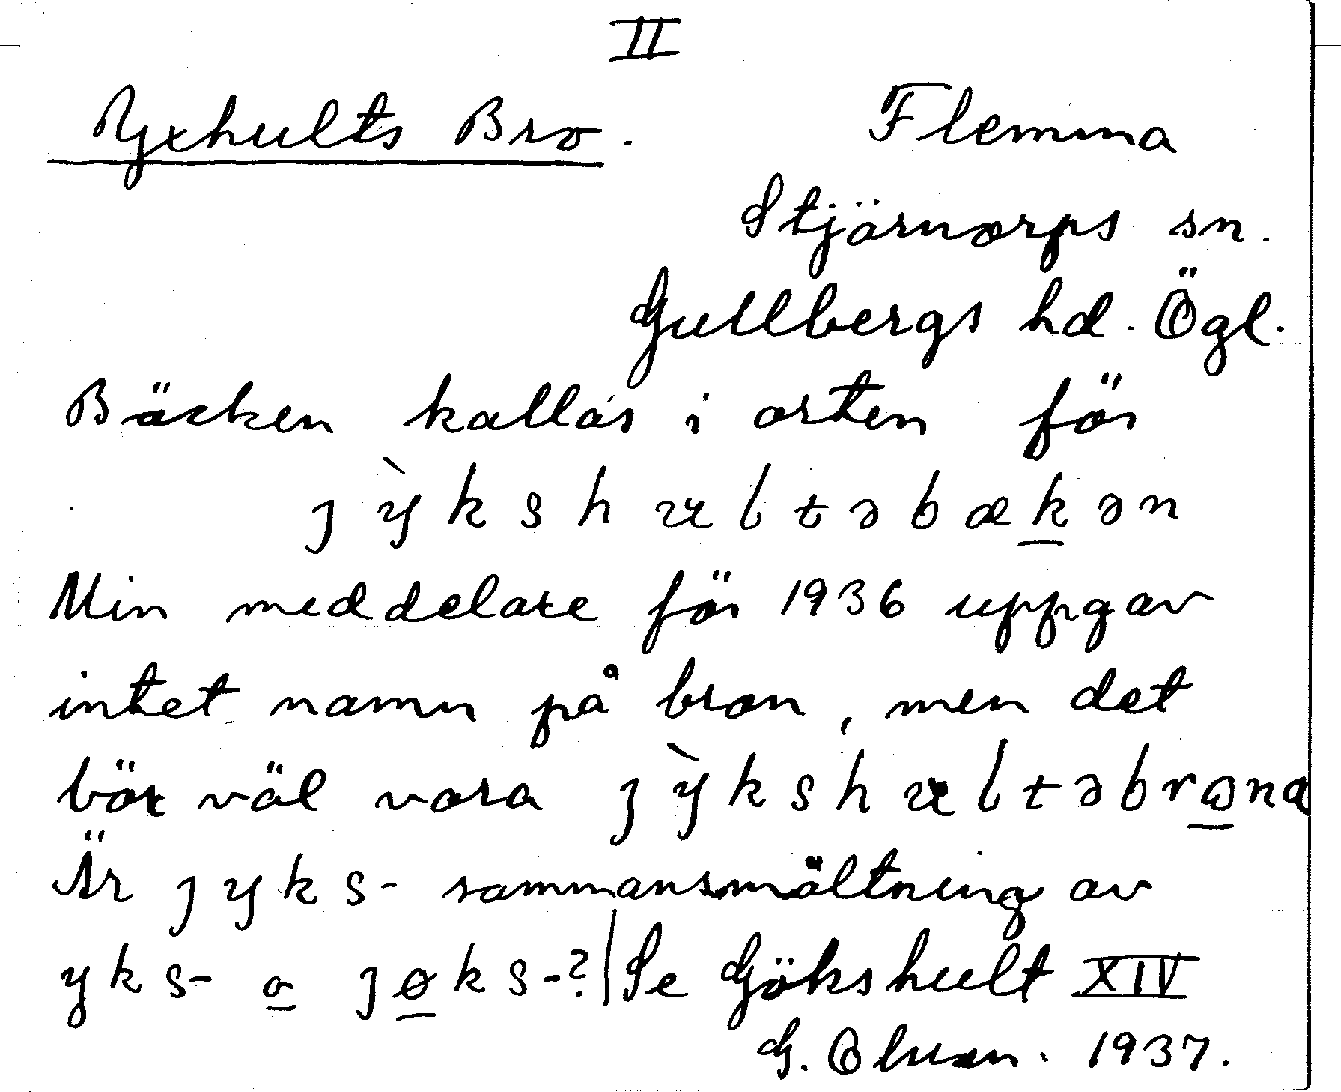 II
Yxhults Bro. Flemma
Stjärnorps sn.
Gullbergs hd. Ögl.
Bäcken kallas i orten för
jỳkshultəbækən
Min meddelare för 1936 uppgav
intet namn på bron, men det
bör väl vara jỳkshultəbrɷna
Är jyks- sammansmältning av
yks- o jøks-? | Se Gökshult XIV
G. 1937.